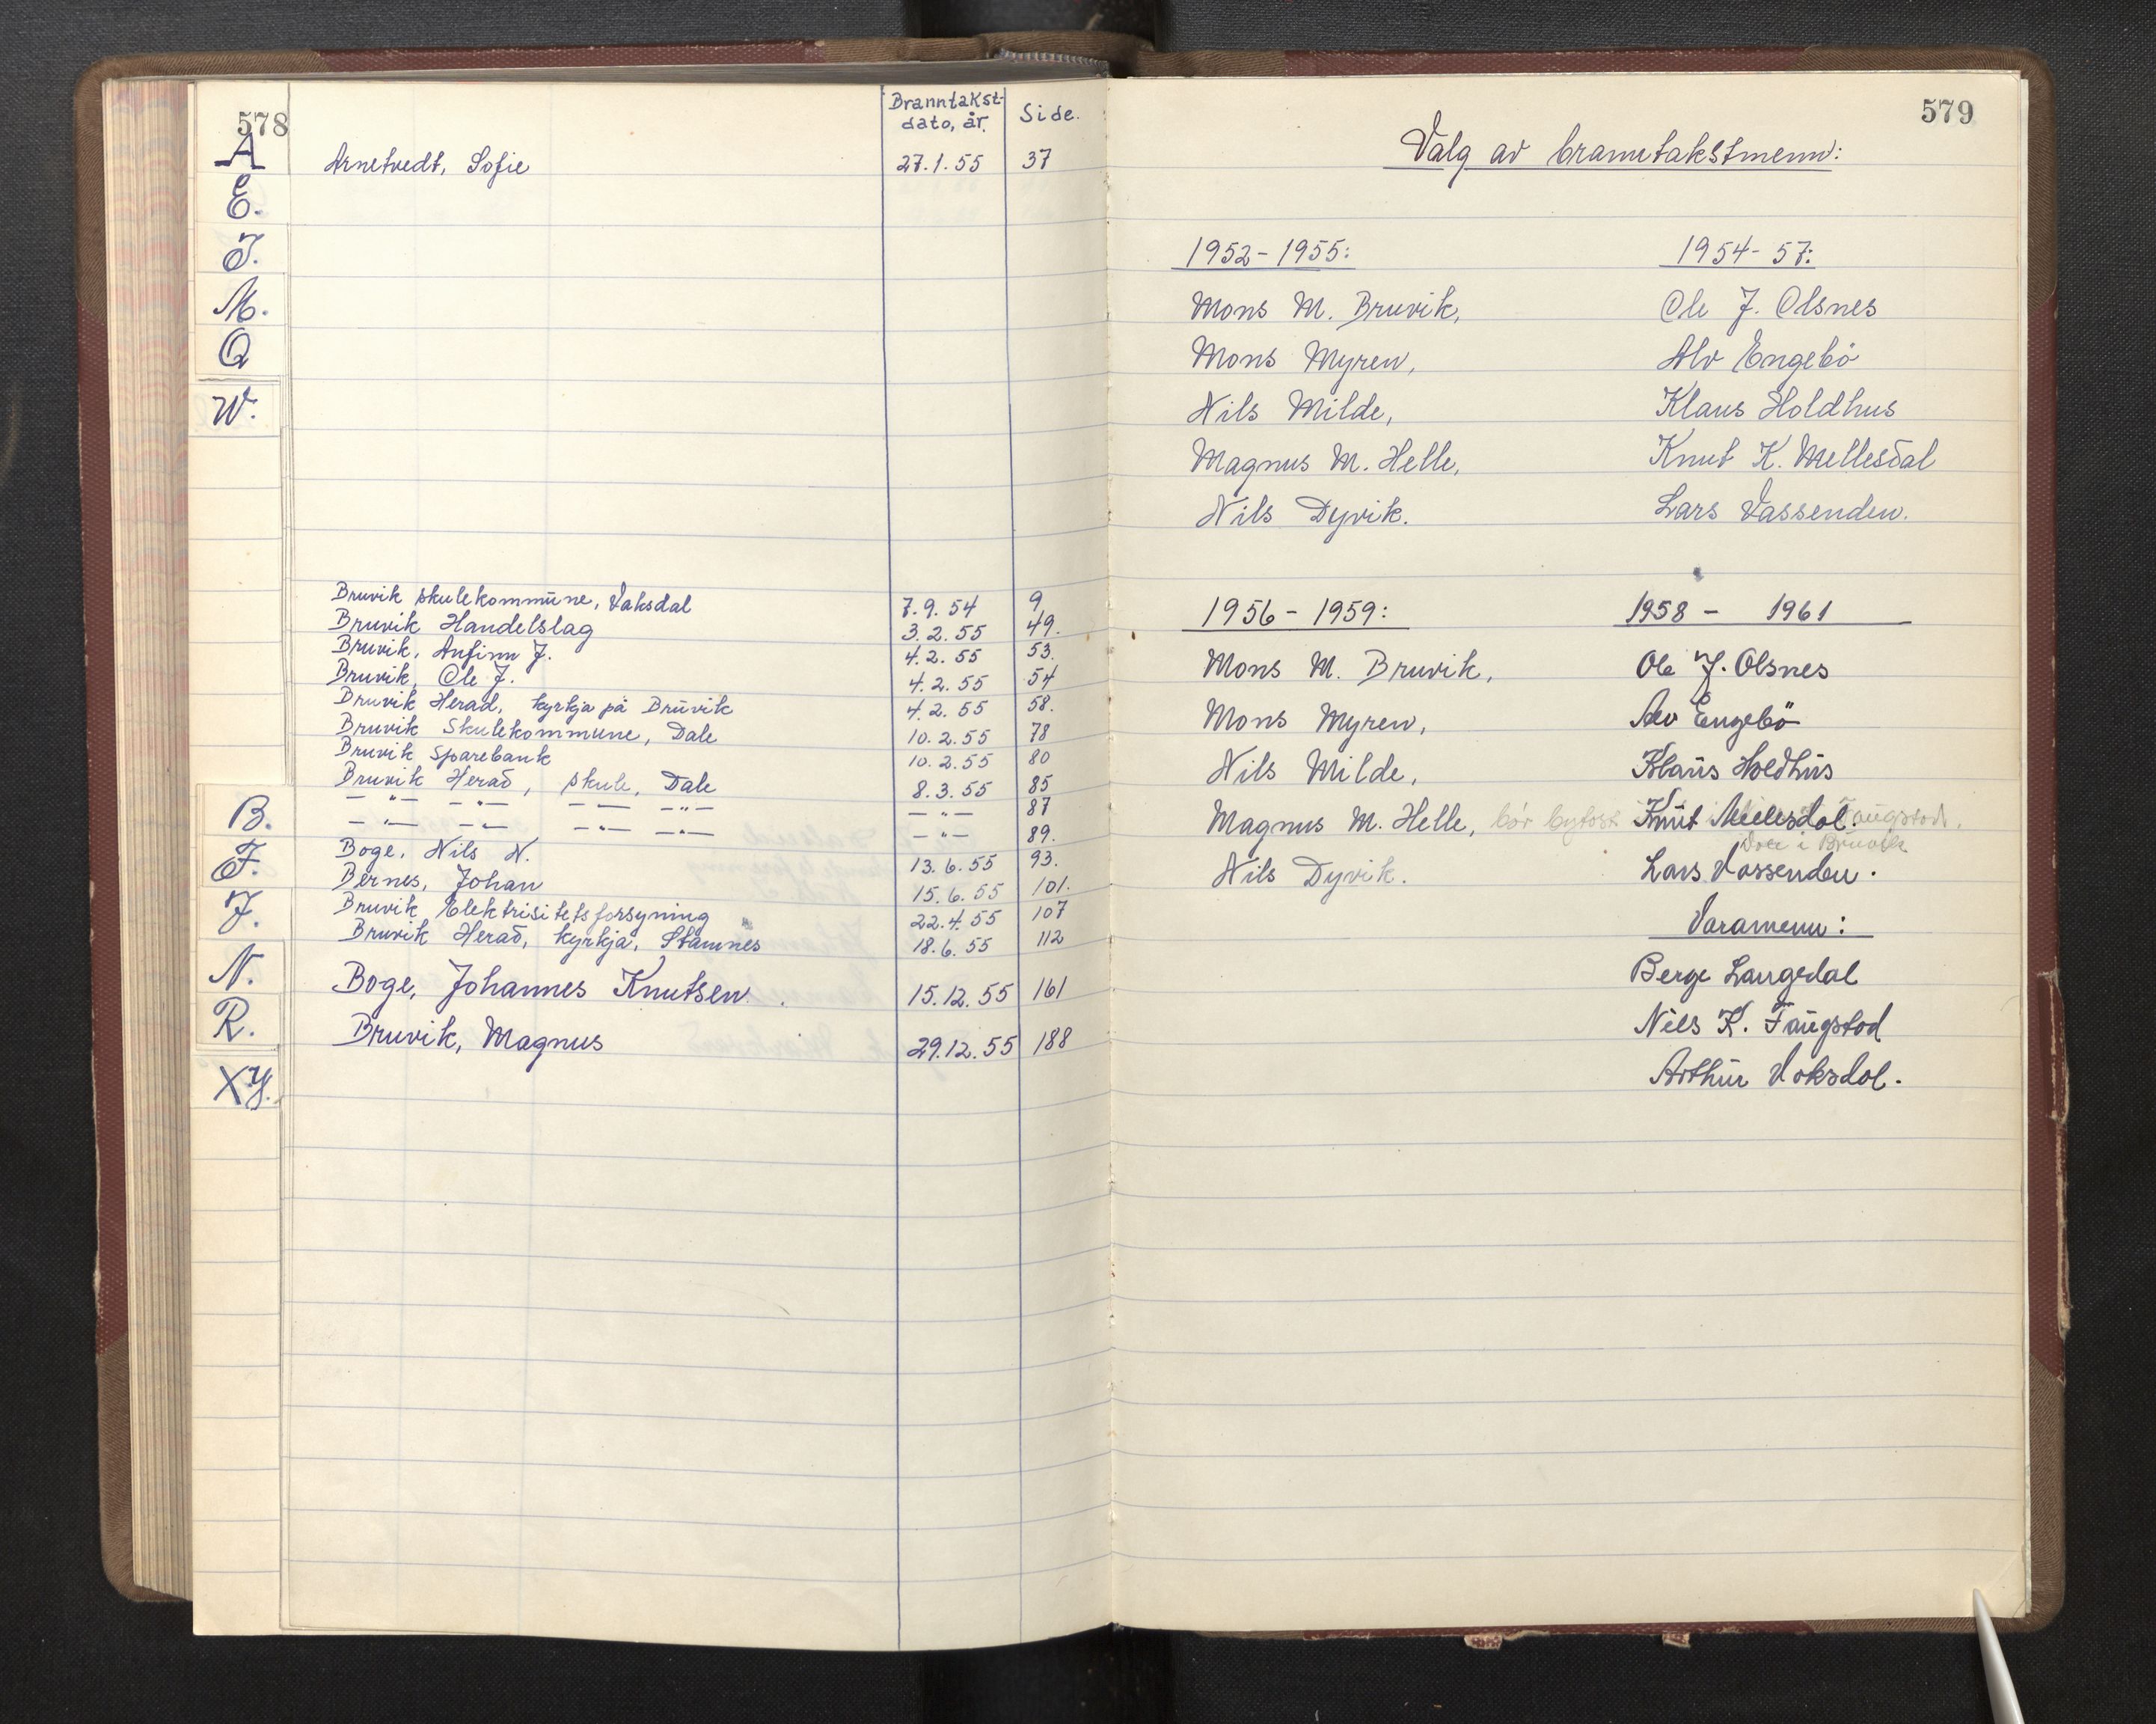 578
Branntakst-
dato, år.
Side.
A
Arnetvedt, Sofie 27.1.55 37
E.
I.
M.
Q
W.
Bruvik skulekommune, Vaksdal 7.9.54 9
Bruvik Handelslag 3.2.55 49.
Bruvik, Anfinn J. 4.2.55 53.
Bruvik, Ole J. 4.2.55 54
Bruvik Herad, kyrkja på Bruvik 4.2.55 58.
Bruvik Skulekommune, Dale 10.2.55 78
Bruvik Sparebank 10.2.55 80
Bruvik Herad, skule, Dale 8.3.55 85
—"— —"— —"— —"— —"— 87
B.
—"— —"— —"— —"— —"— 89.
Boge, Nils N. 13.6.55 93.
F.
Bernes, Johan 15.6.55 101.
J.
Bruvik Elektrisitetsforsyning 22.4.55 107
Bruvik Herad, kyrkja, Stamnes 18.6.55 112
N.
Boge, Johannes Knutsen. 15.12.55 161
R.
Bruvik, Magnus 29.12.55 188
XY.
579
Valg av branntakstmenn:
1952-1955:
Mons M. Bruvik,
Mons Myren,
Nils Milde,
Magnus M. Helle,
Nils Dyvik.
1954-57:
Ole J. Olsnes
Alv Engebø
Klaus Holdhus
Knut K. Mellesdal
Lars Vassenden.
1956-1959:
Mons M. Bruvik,
Mons Myren,
Nils Milde,
Magnus M. Helle, bør bytast
Nils Dyvik.
1958 - 1961
Ole J. Olsnes
Alv Engebö
Klaus Holdhus
Knut Mellesdal. Faugstad.
i Bruvik
Lars Vassenden.
Varamenn:
Berge Langedal
Nils K. Faugstad
Arthur Vaksdal.